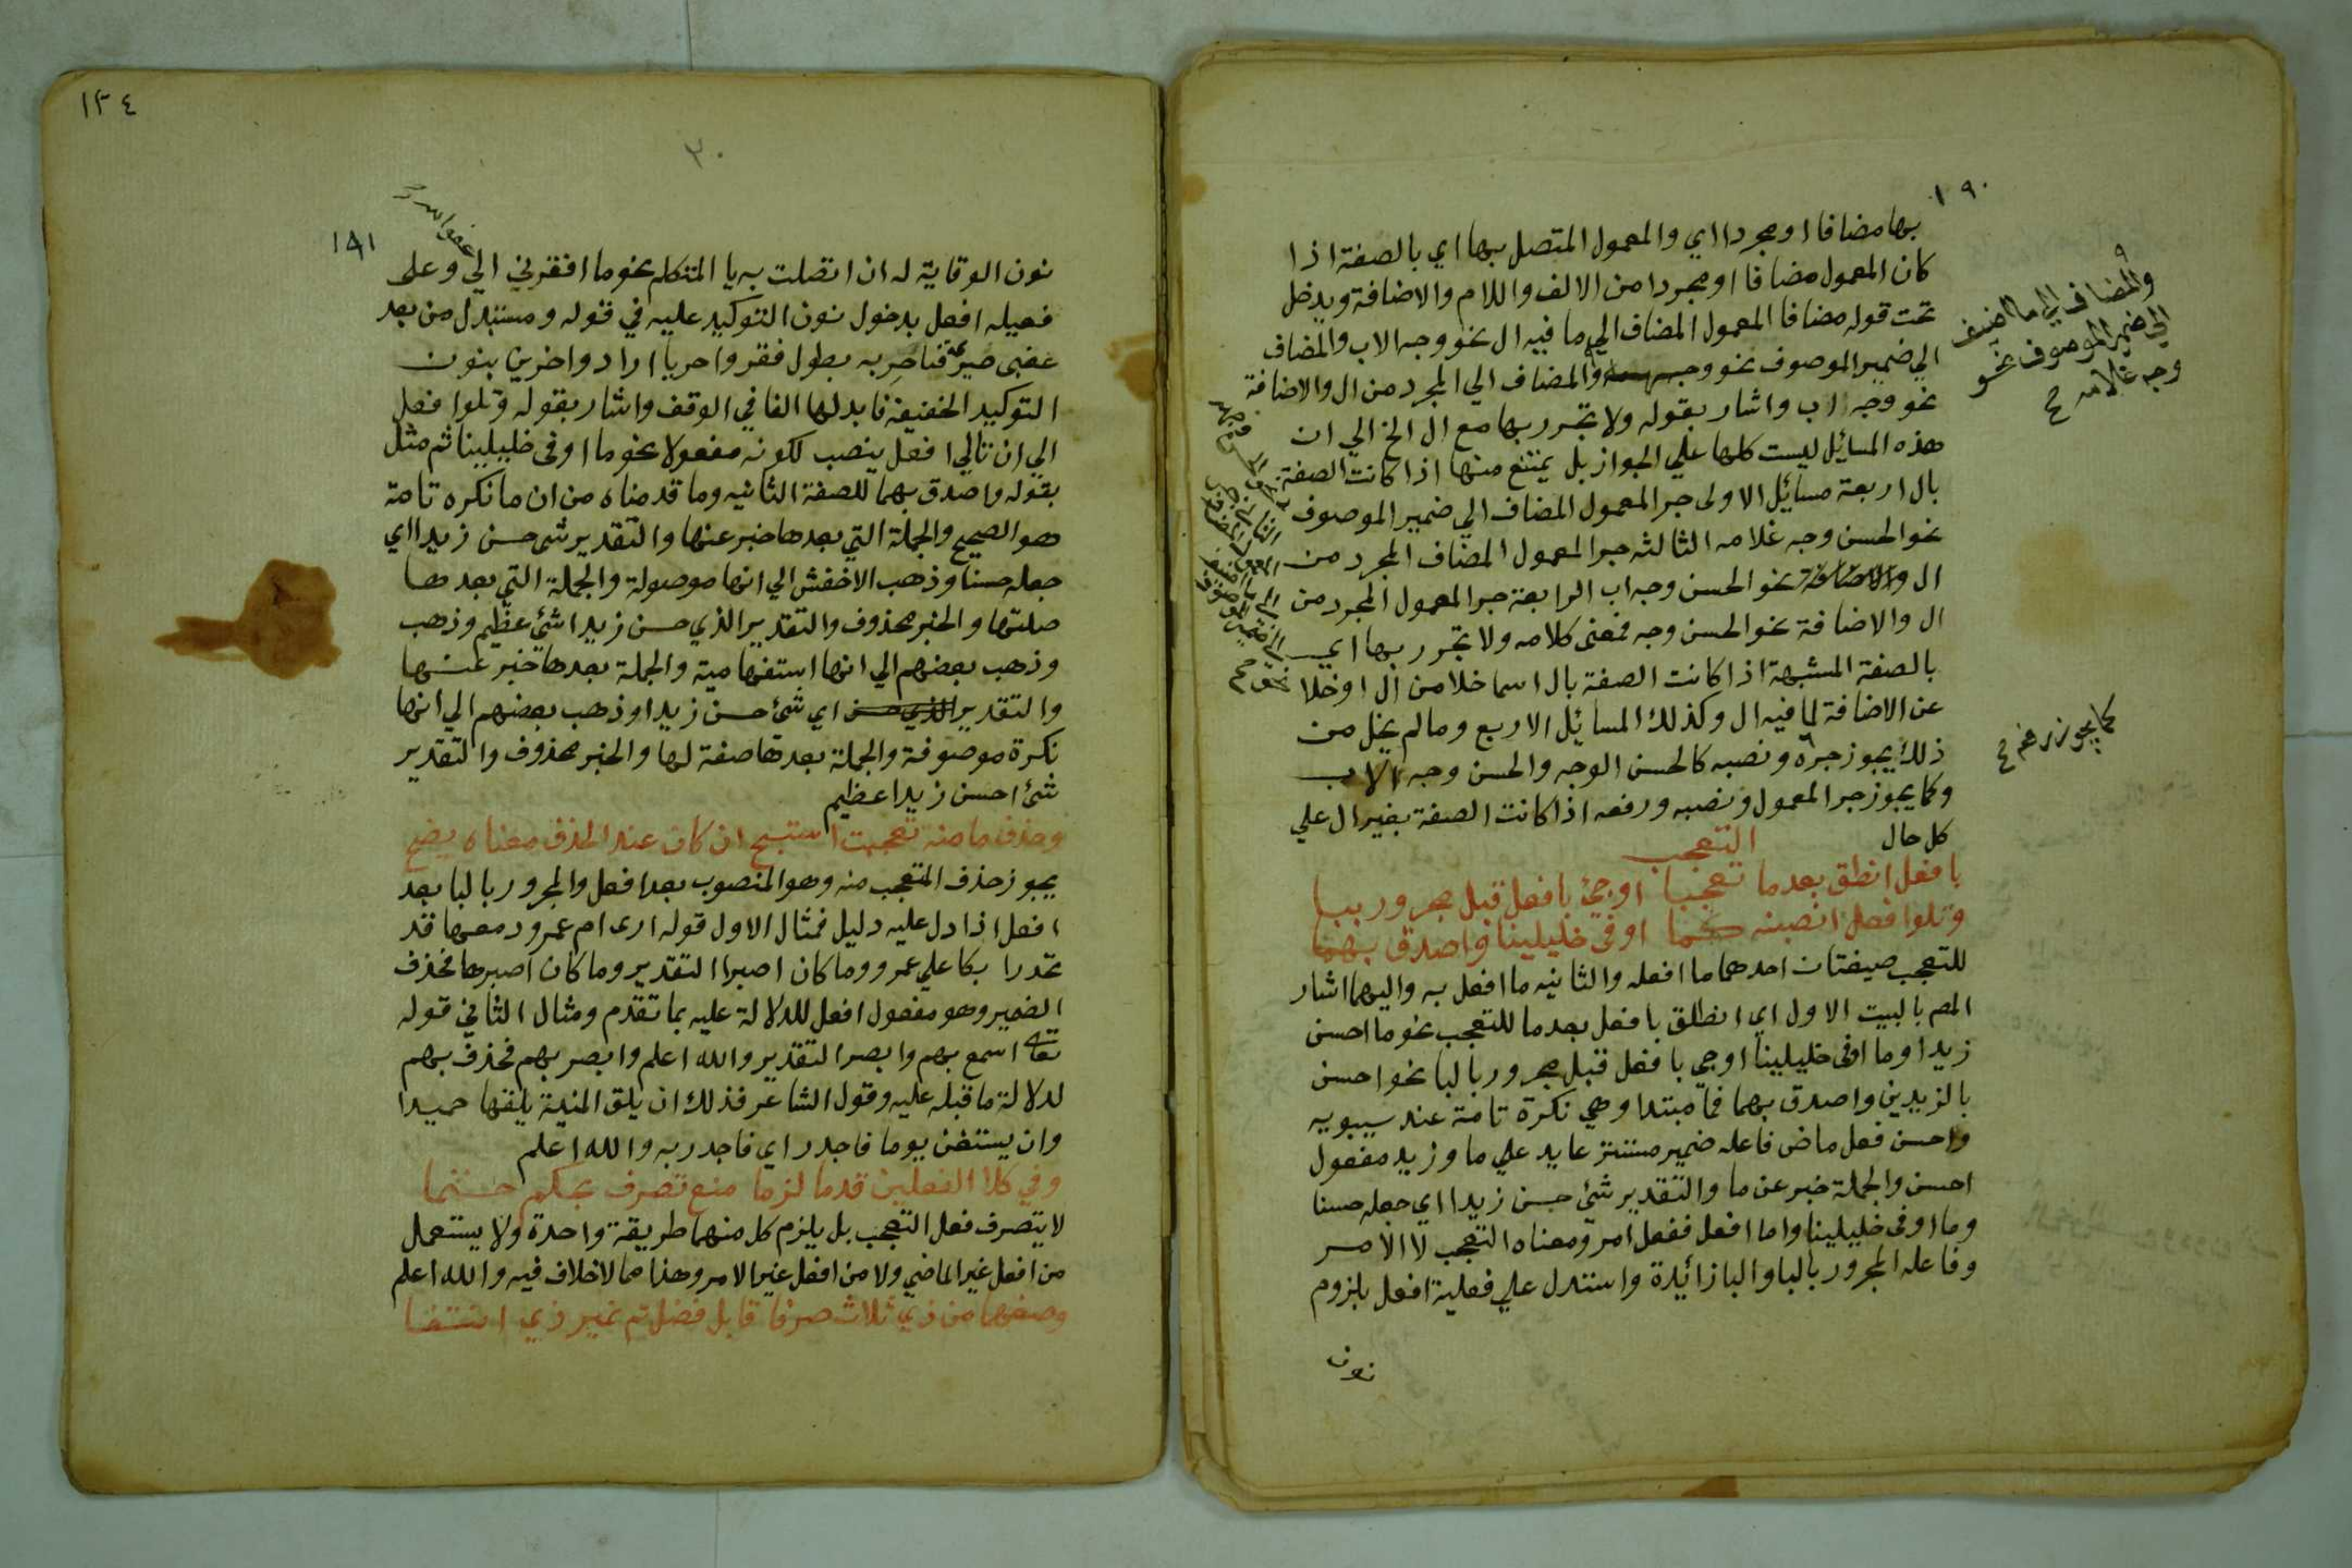 ١٩٠
بها مضافا او مجردا اي والمعمول المتصل بها اي بالصفة اذا
كان المعمول مضافا او مجردا من الالف واللام والاضافة ويدخل
تحت قوله مضافا المعمول المضاف الي ما فيه ال نحو وجه الاب والمضاف
الي ضمير الموصوف نحو وجهه والمضاف الي المجرد من ال والاضافة
نحو وجه اب واشار بقوله ولا تجرر بها مع ال الخ الي ان
هذه المسائل ليست كلها علي الجواز بل يمتنع منها اذا كانت الصفة
بال اربعة مسائل الاولى جر المعمول المضاف الي ضمير الموصوف
نحو الحسن وجه غلامه الثالثه جر المعمول المضاف المجرد من
ال والاضافة نحو الحسن وجه اب الرابعة جر المعمول المجرد من
ال والاضافة نحو الحسن وجه فمعنى كلامه ولا تجرر بها اي
بالصفة المشبهة اذا كانت الصفة بال اسما خلا من ال او خلا
عن الاضافة لما فيه ال وكذلك المسائل الاربع وما لم يخل من
ذلك يجوز جره ونصبه كالحسن الوجه والحسن وجه الاب
وكما يجوز جر المعمول ونصبه ورفعه اذا كانت الصفة بغير ال علي
كل حال
التعجب
بافعل انطق بعد ما تعجبا او جئ بافعل قبل مجرور ببا
وتلو افعل انصبنه كما اوفى خليلينا واصدق بهما
للتعجب صيغتان احدهما ما افعله والثانيه ما افعل به واليهما اشار
المص بالبيت الاول اي انطلق بافعل بعد ما للتعجب نحو ما احسن
زيدا وما اوفى خليلينا او جي بافعل قبل مجرور بالبا نحو احسن
بالزيدين واصدق بهما فما مبتدا وهي نكرة تامة عند سيبويه
واحسن فعل ماض فاعله ضمير مستتر عايد علي ما وزيد مفعول
احسن والجملة خبر عن ما والتقدير شئ حسن زيدا اي جعله حسنا
وما اوفى خليلينا واما افعل ففعل امر ومعناه التعجب لا الامر
وفاعله المجرور بالبا والبا زائدة واستدل علي فعلية افعل بلزوم
نون
والمضاف الي ما اضيف
الي ضمير الموصوف نحو
وجه غلامه
كما يجوز رفعه
١٣٤
٣٠
١٩١
نون الوقاية له ان اتصلت به يا المتكلم نحو ما افقرني الي وعلى
فعيله افعل بدخول نون التوكيد عليه في قوله ومستبدل من بعد
غضبى صريمة فاحر به بطول فقر واحريا اراد واخرين بنون
التوكيد الخفيفة فابدلها الفا في الوقف واشار بقوله وتلو افعل
الي ان تالي افعل ينصب لكونه مفعولا نحو ما اوفى خليلينا ثم مثل
بقوله واصدق بهما للصفة الثانيه وما قدمناه من ان ما نكره تامة
هو الصحيح والجملة التي بعدها خبر عنها والتقدير شئ حسن زيدا اي
جعله حسنا وذهب الاخفش الي انها موصولة والجملة التي بعدها
صلتها والخبر محذوف والتقدير الذي حسن زيدا شئ عظيم وذهب
وذهب بعضهم الي انها استفهامية والجملة بعدها خبر عنها
والتقدير الذي حسن اي شئ حسن زيدا وذهب بعضهم الي انها
نكرة موصوفة والجملة بعدها صفة لها والخبر محذوف والتقدير
شئ احسن زيدا عظيم
وحذف ما منه تعجبت استبح ان كان عند الحذف معناه يضح
يجوز حذف المتعجب منه وهو المنصوب بعد افعل والمجرور بالبا بعد
افعل اذا دل عليه دليل فمثال الاول قوله ارى ام عمرو دمعها قد
تحدرا بكا علي عمرو وما كان اصبرا التقدير وما كان اصبرها فحذف
الضمير وهو مفعول افعل للدلالة عليه بما تقدم ومثال الثاني قوله
تعالى اسمع بهم وابصر التقدير والله اعلم وابصر بهم فحذف بهم
لدلالة ما قبله عليه وقول الشاعر فذلك ان يلق المنية يلقها حميدا
وان يستغن يوما فاجدر اي فاجدر به والله اعلم
وفي كلا الفعلين قدما لزما منع تصرف بحكم حتما
لا يتصرف فعل التعجب بل يلزم كل منهما طريقة واحدة ولا يستعمل
من افعل غير الماضي ولا من افعل غير الامر وهذا مما لا خلاف فيه والله اعلم
وصغهما من ذي ثلاث صرفا قابل فضل تم غير ذي انتفا